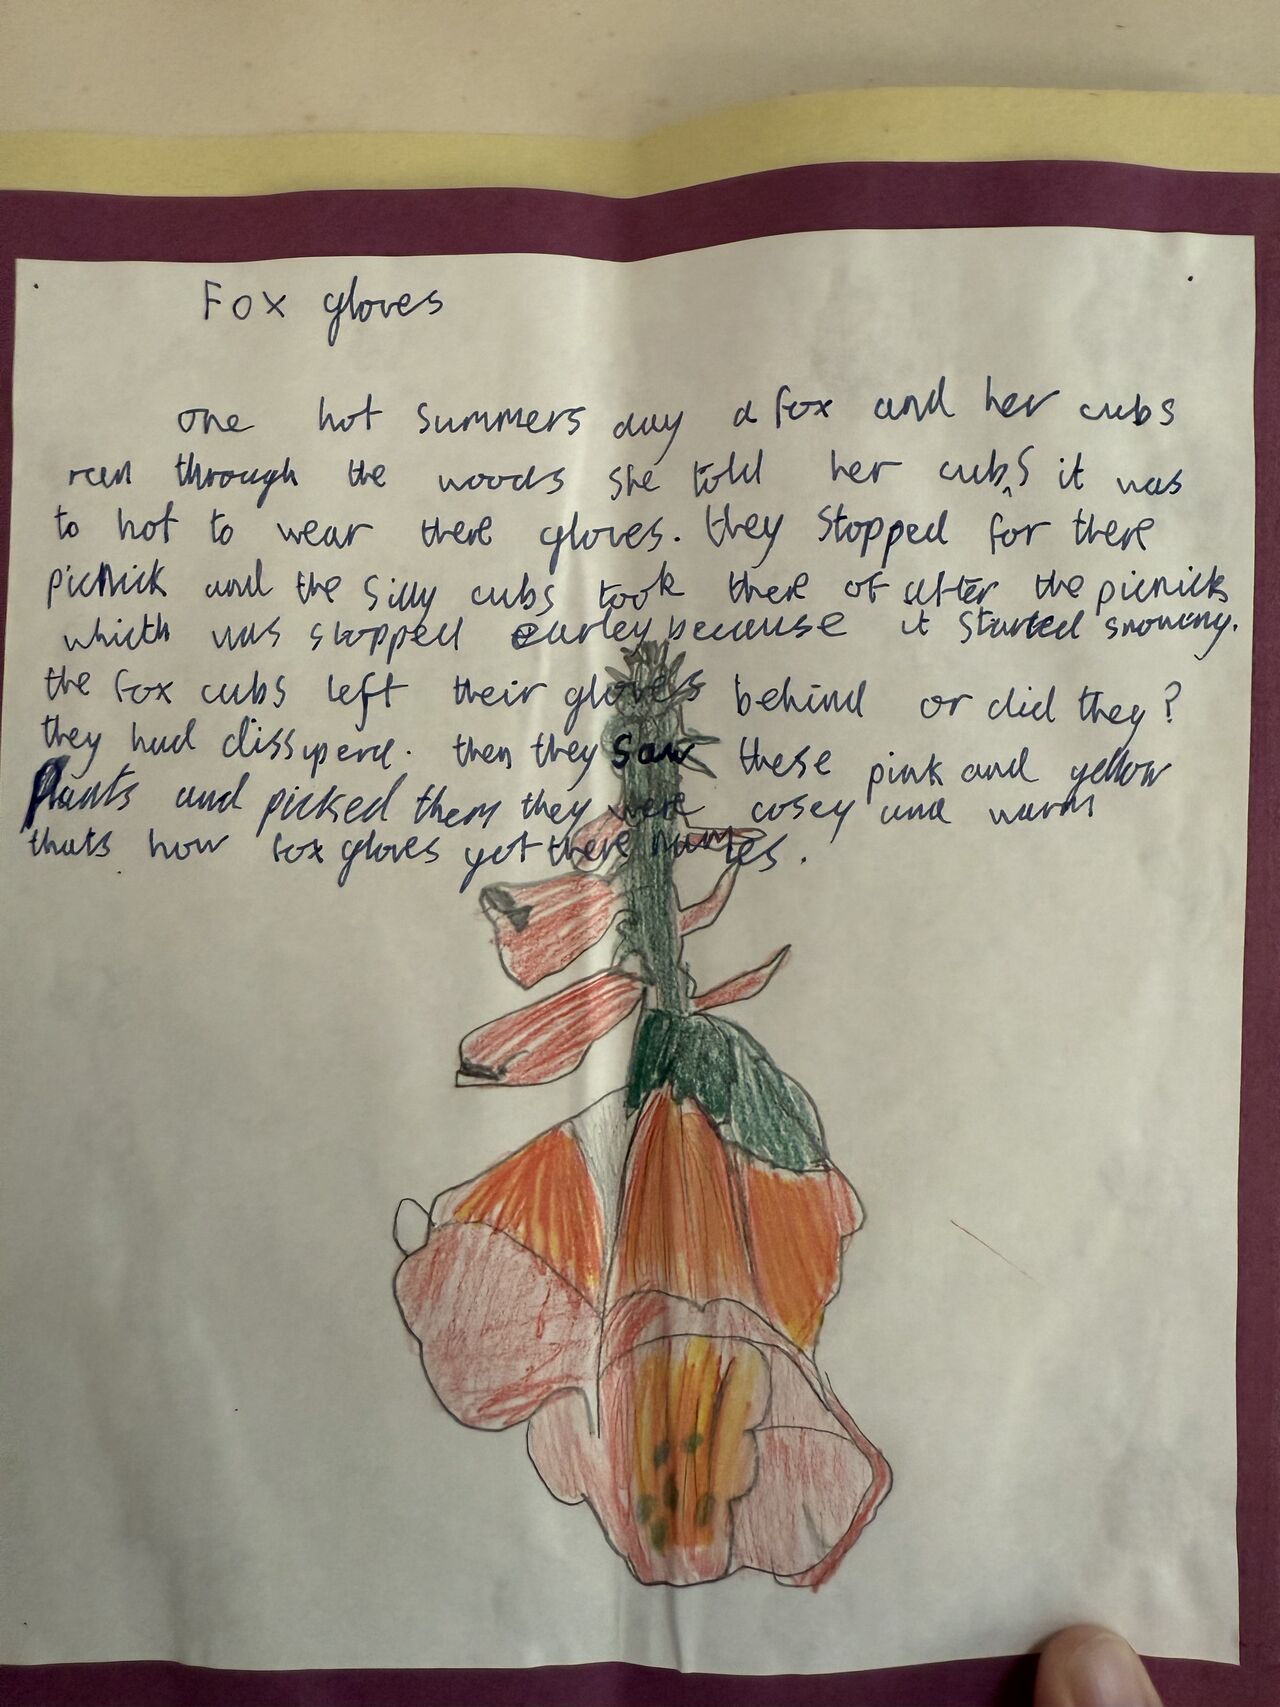 Fox gloves
one hot summers day a fox and her cubs
ran through the woods she told her cubs it was
to hot to wear there gloves. they stopped for there
picnick and the silly cubs took there of after the picnick
which was stopped earley because it started snowing.
the fox cubs left their gloves behind or did they?
they had dissiperd. then they saw these pink and yellow
plants and picked them they were cosey and warm
thats how fox gloves got there names.